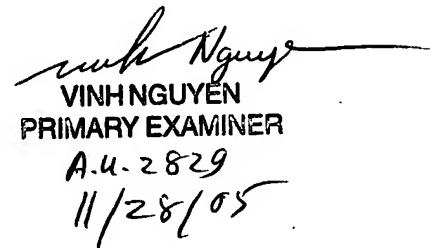 Vinh Nguyen
VINH NGUYEN
PRIMARY EXAMINER
A.U. 2829
11/28/05